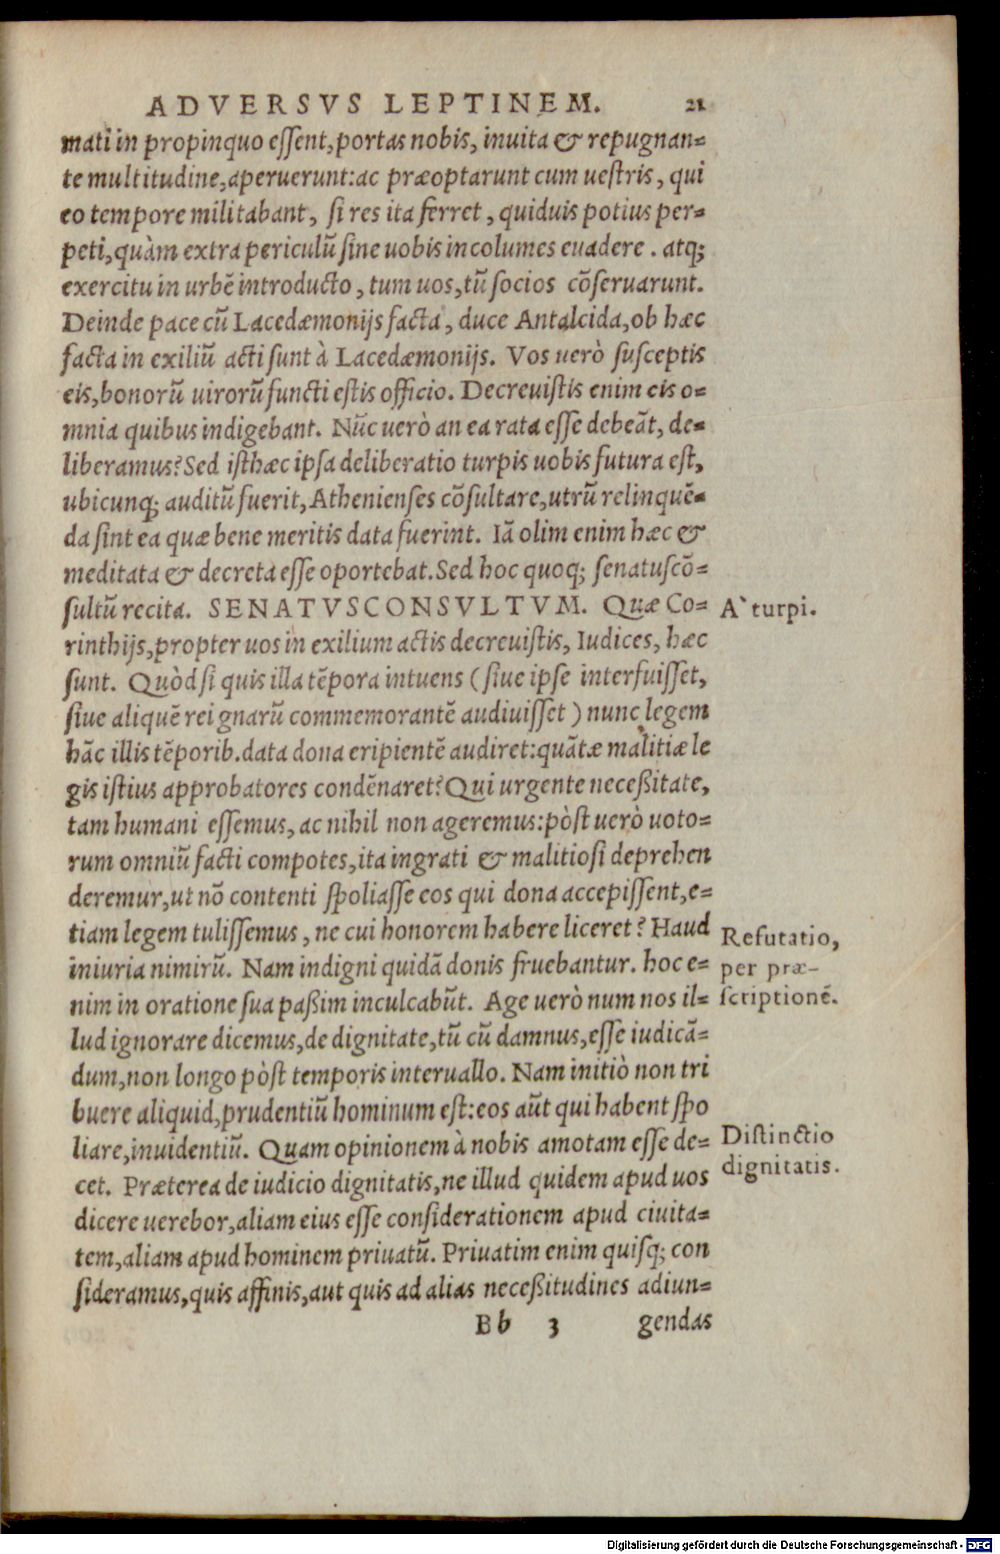 ADVERSVS LEPTINEM. 21
mati in propinquo eſſent, portas nobis, inuita & repugnan=
te multitudine, aperuerunt: ac præoptarunt cum ueſtris, qui
eo tempore militabant, ſi res ita ferret, quiduis potius per=
peti, quàm extra periculũ ſine uobis incolumes euadere. atq;
exercitu in urbẽ introducto, tum uos, tũ ſocios cõſeruarunt.
Deinde pace cũ Lacedæmonijs facta, duce Antalcida, ob hæc
facta in exiliũ acti ſunt à Lacedæmonijs. Vos uerò ſuſceptis
eis, bonorũ uirorũ functi eſtis officio. Decreuiſtis enim eis o=
mnia quibus indigebant. Nũc uerò an ea rata eſſe debeãt, de=
liberamus? Sed iſthæc ipſa deliberatio turpis uobis futura eſt,
ubicunq; auditũ fuerit, Athenienſes cõſultare, utrũ relinquẽ=
da ſint ea quæ bene meritis data fuerint. Iã olim enim hæc &
meditata & decreta eſſe oportebat. Sed hoc quoq; ſenatuſcõ=
ſultũ recita. SENATVSCONSVLTVM. Quæ Co=
A` turpi.
rinthijs, propter uos in exilium actis decreuiſtis, Iudices, hæc
ſunt. Quòd ſi quis illa tẽpora intuens (ſiue ipſe interfuiſſet,
ſiue aliquẽ rei gnarũ commemorantẽ audiuiſſet) nunc legem
hãc illis tẽporib. data dona eripientẽ audiret: quãtæ malitiæ le
gis iſtius approbatores condẽnaret? Qui urgente neceßitate,
tam humani eſſemus, ac nihil non ageremus: pòſt uerò uoto=
rum omniũ facti compotes, ita ingrati & malitioſi deprehen
deremur, ut nõ contenti ſpoliaſſe eos qui dona accepiſſent, e=
tiam legem tuliſſemus, ne cui honorem habere liceret? Haud
iniuria nimirũ. Nam indigni quidã donis fruebantur. hoc e=
nim in oratione ſua paßim inculcabũt. Age uerò num nos il=
Refutatio,
per præ-
ſcriptionẽ.
lud ignorare dicemus, de dignitate, tũ cũ damnus, eſſe iudicã=
dum, non longo pòſt temporis interuallo. Nam initiò non tri
buere aliquid, prudentiũ hominum eſt: eos aũt qui habent ſpo
liare, inuidentiũ. Quam opinionem à nobis amotam eſſe de=
Diſtinctio
dignitatis.
cet. Præterea de iudicio dignitatis, ne illud quidem apud uos
dicere uerebor, aliam eius eſſe conſiderationem apud ciuita=
tem, aliam apud hominem priuatũ. Priuatim enim quiſq; con
ſideramus, quis affinis, aut quis ad alias neceßitudines adiun=
Bb 3 gendas
Digitalisierung gefördert durch die Deutsche Forschungsgemeinschaft - DFG